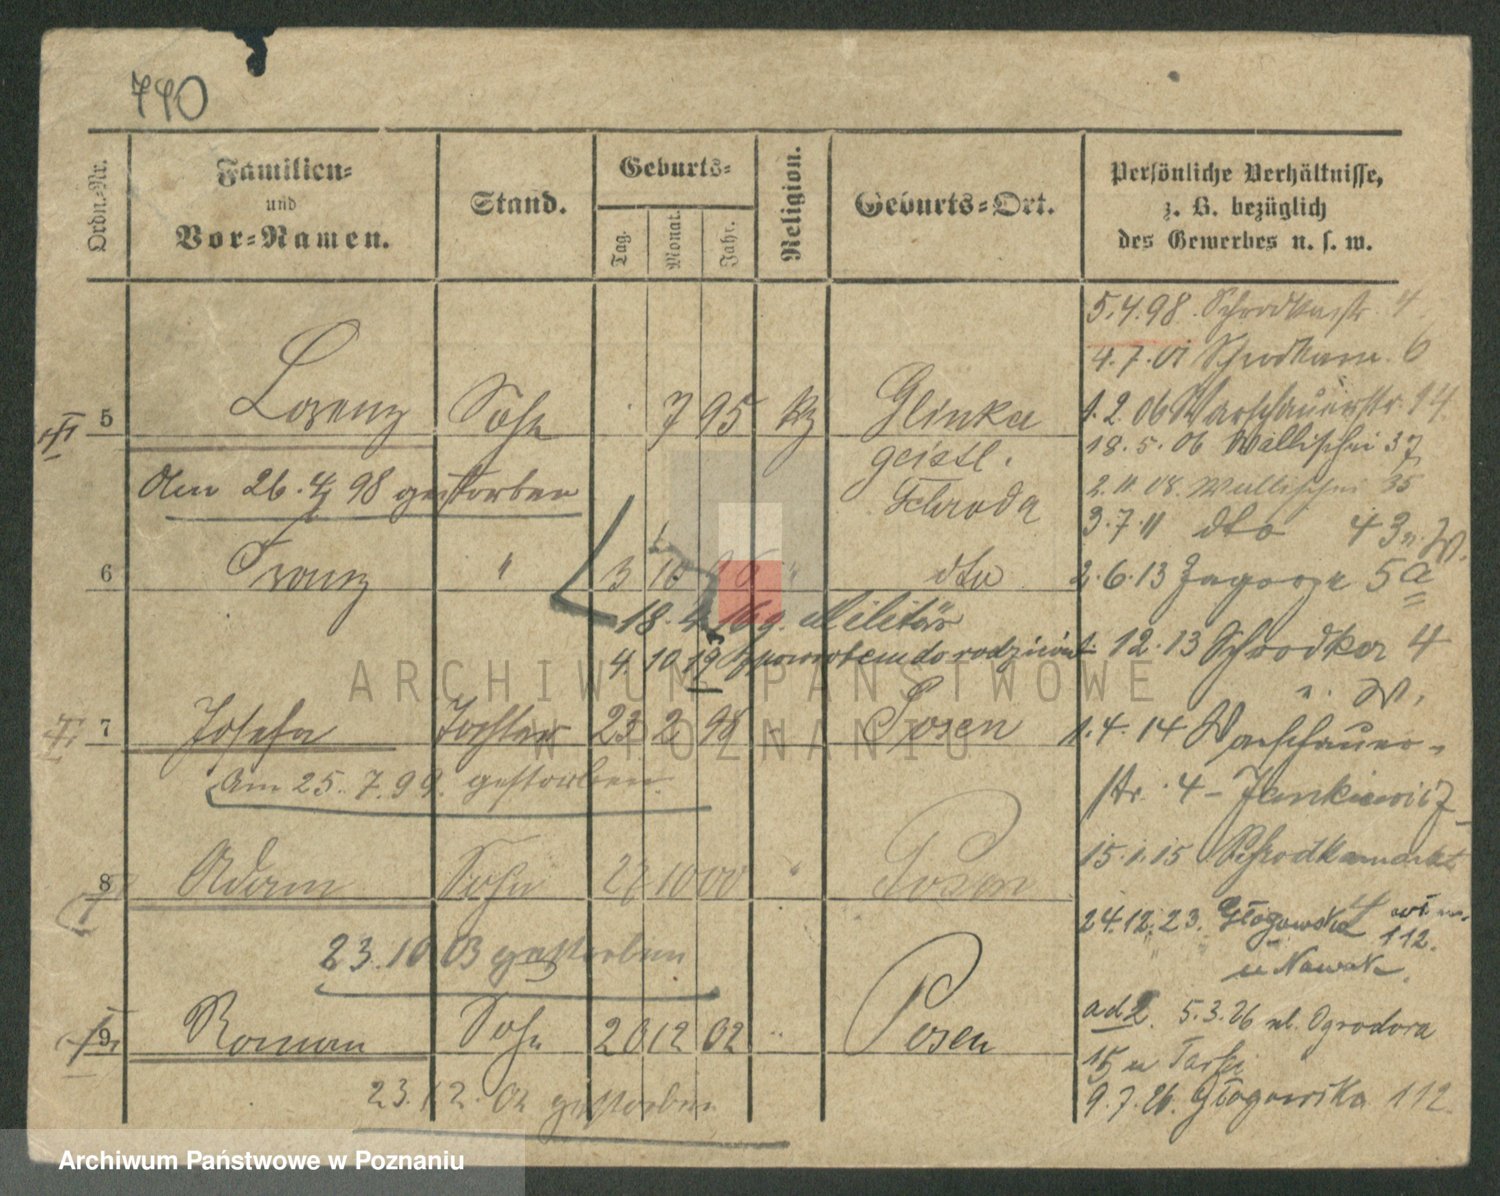 740
Ordn.-Nr.
Familien-
und
Vor-Namen.
Stand.
Geburts-
Tag.
Monat.
Jahr.
Religion.
Geburts-Ort.
Persönliche Verhältnisse,
z. B. bezüglich
des Gewerbes u. s. w.
5.4.98. Schrodkastr. 4.
4.7.01 Schrodkam. 6
1.2.06 Warschauerstr. 14.
5 Lorenz Sohn 7 95 Glinka
18.5.06 Wallischei 37
geistl.
Am 26.4.98 gestorben
Schroda
2.11.08. Wallischei 35
3.7.11 dto 43 n. W.
6 Franz " 3 10 " dto
2.6.13 Zagorze 5a
18.4.16 z. Militär
4.10.19 z powrotem do rodziców
1.12.13 Schrodka 4
n. W.
7 Josefa Tochter 23 2 98 Posen
1.4.14 Warschauer-
Am 25.7.99. gestorben.
str. 4 -
8 Adam Sohn 27 10 00 " Posen
15.1.15 Schrodkamarkt 4
24.12.23. Głogowska
112.
23.10 03 gestorben
u Nowak
9 Roman Sohn 20 12 02 " Posen
ad 2. 5.3.26 ul. Ogrodowa
15 u
23.12. 02 gestorben
9.7.26. Głogowska 112.
ARCHIWUM PAŃSTWOWE
W POZNANIU
Archiwum Państwowe w Poznaniu